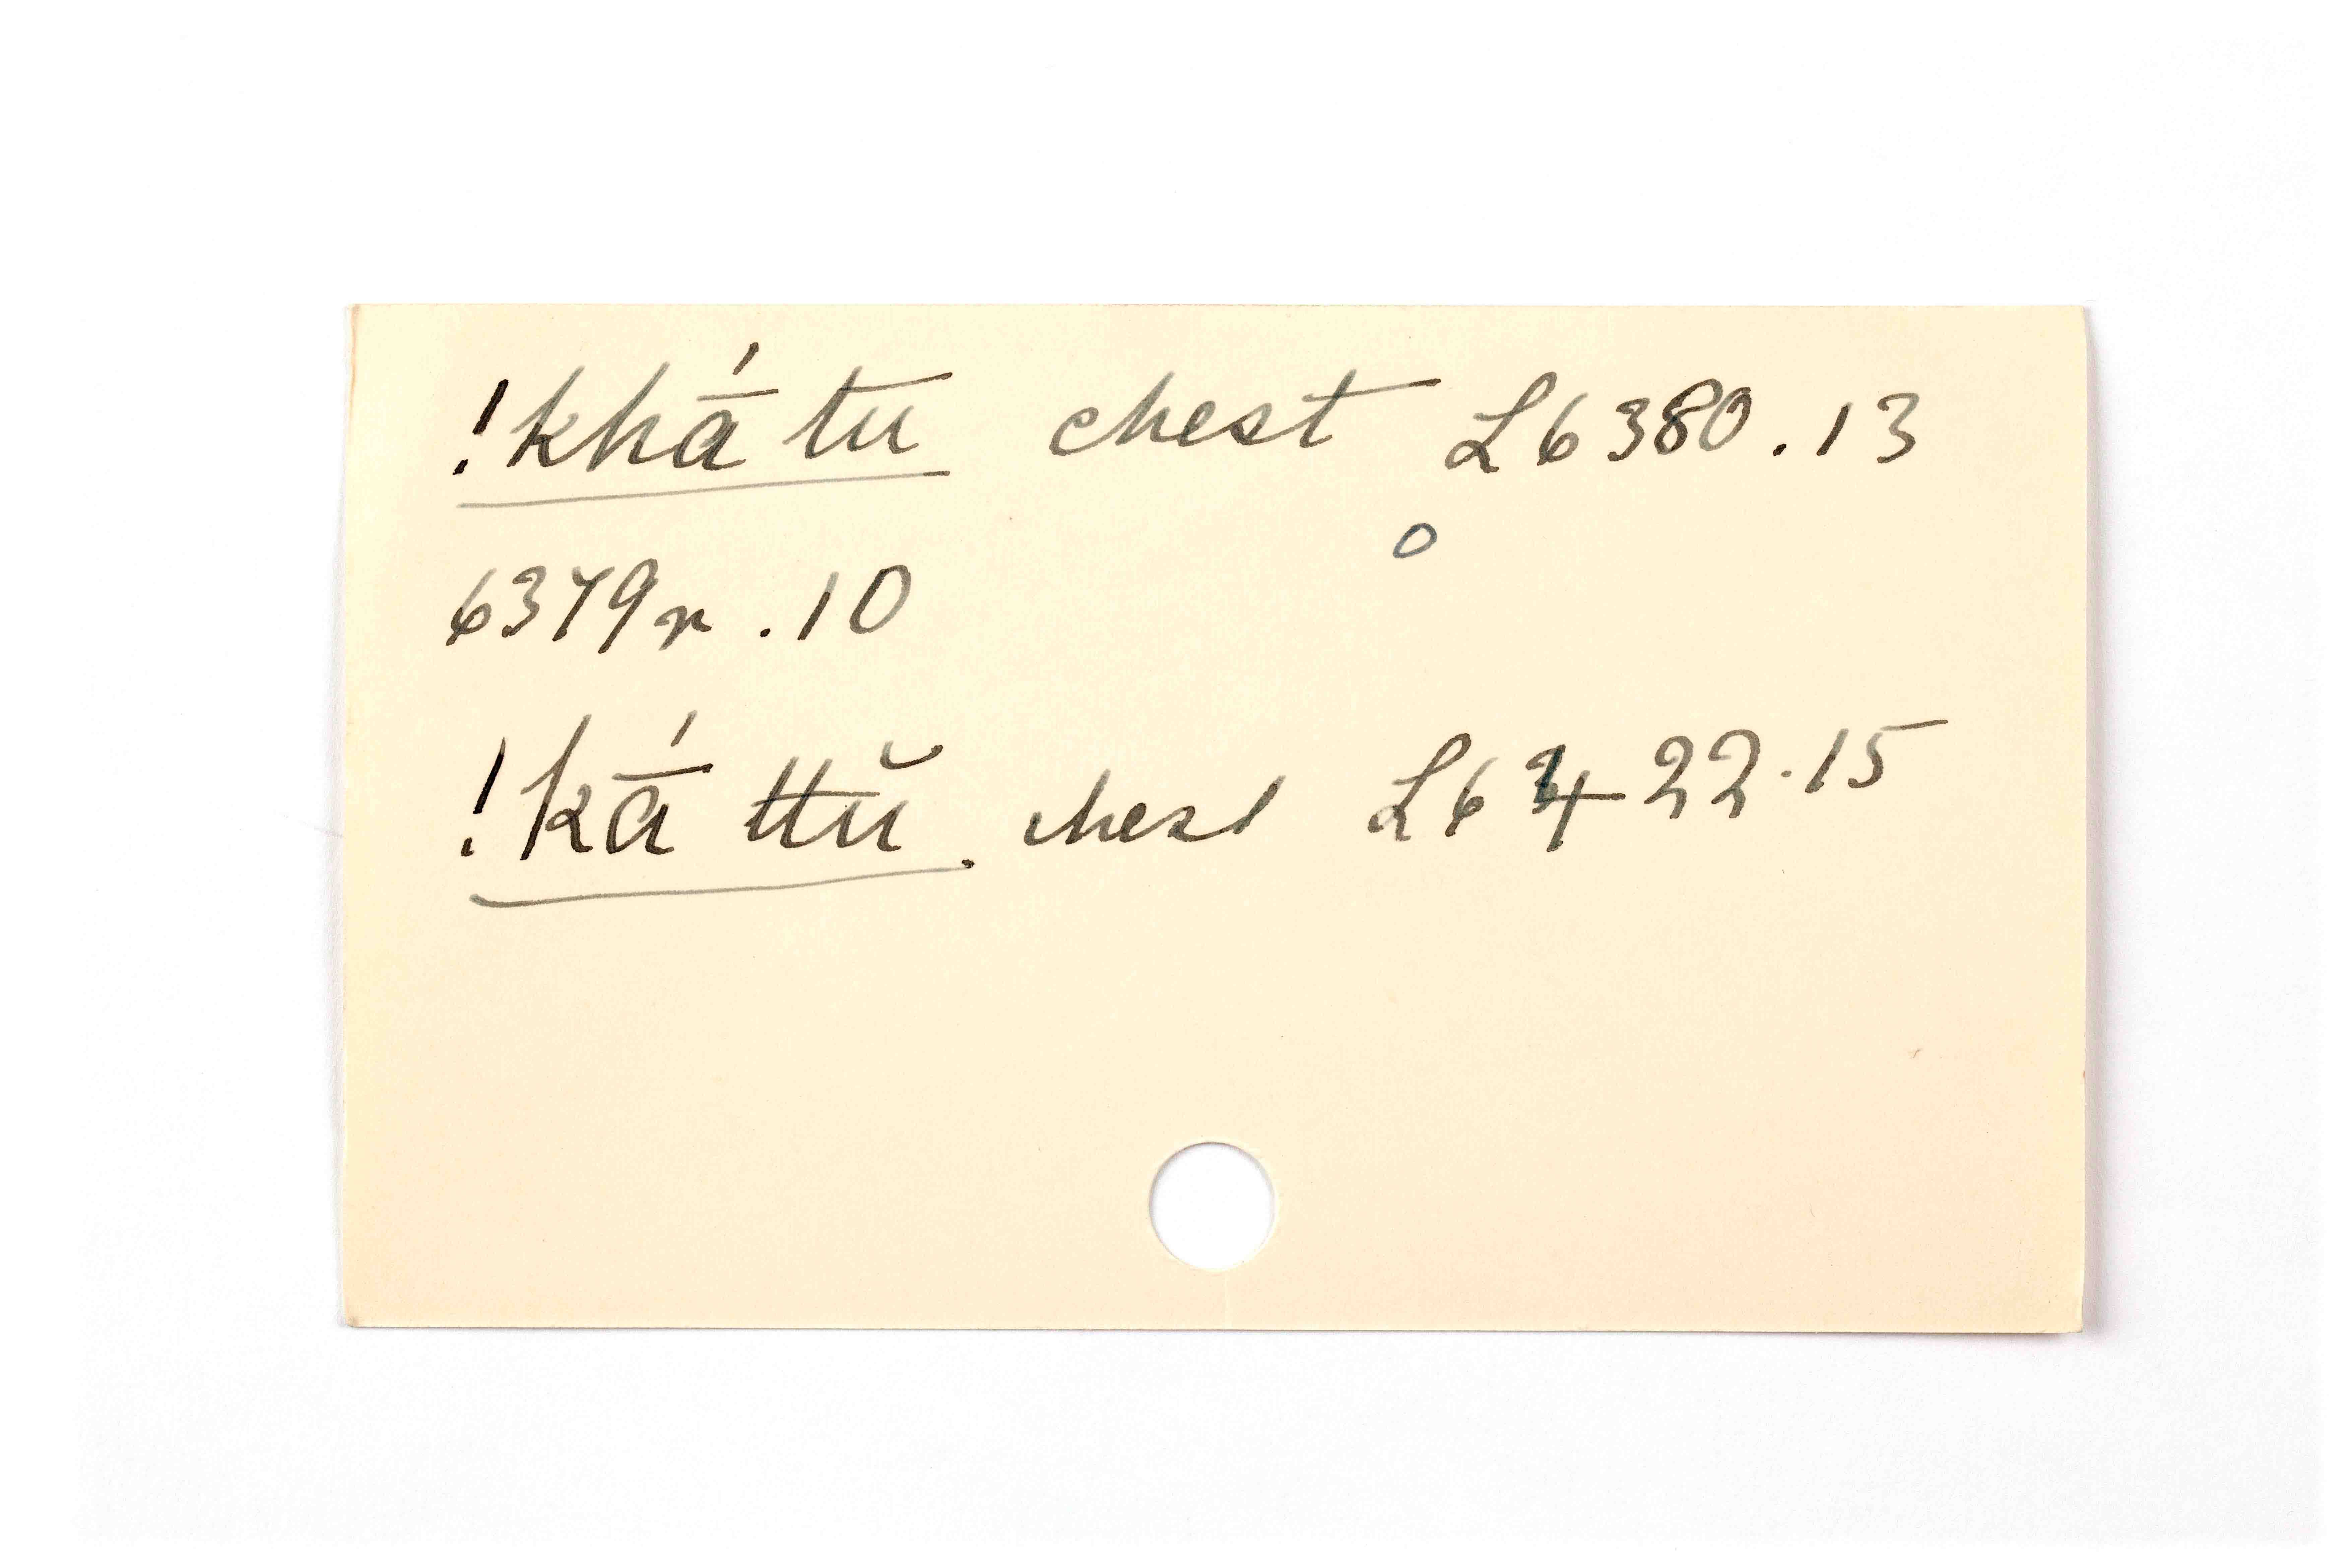 !khā́ tu chest L6380.13
6379r.10
!kā́ ttŭ. chest L6422.15